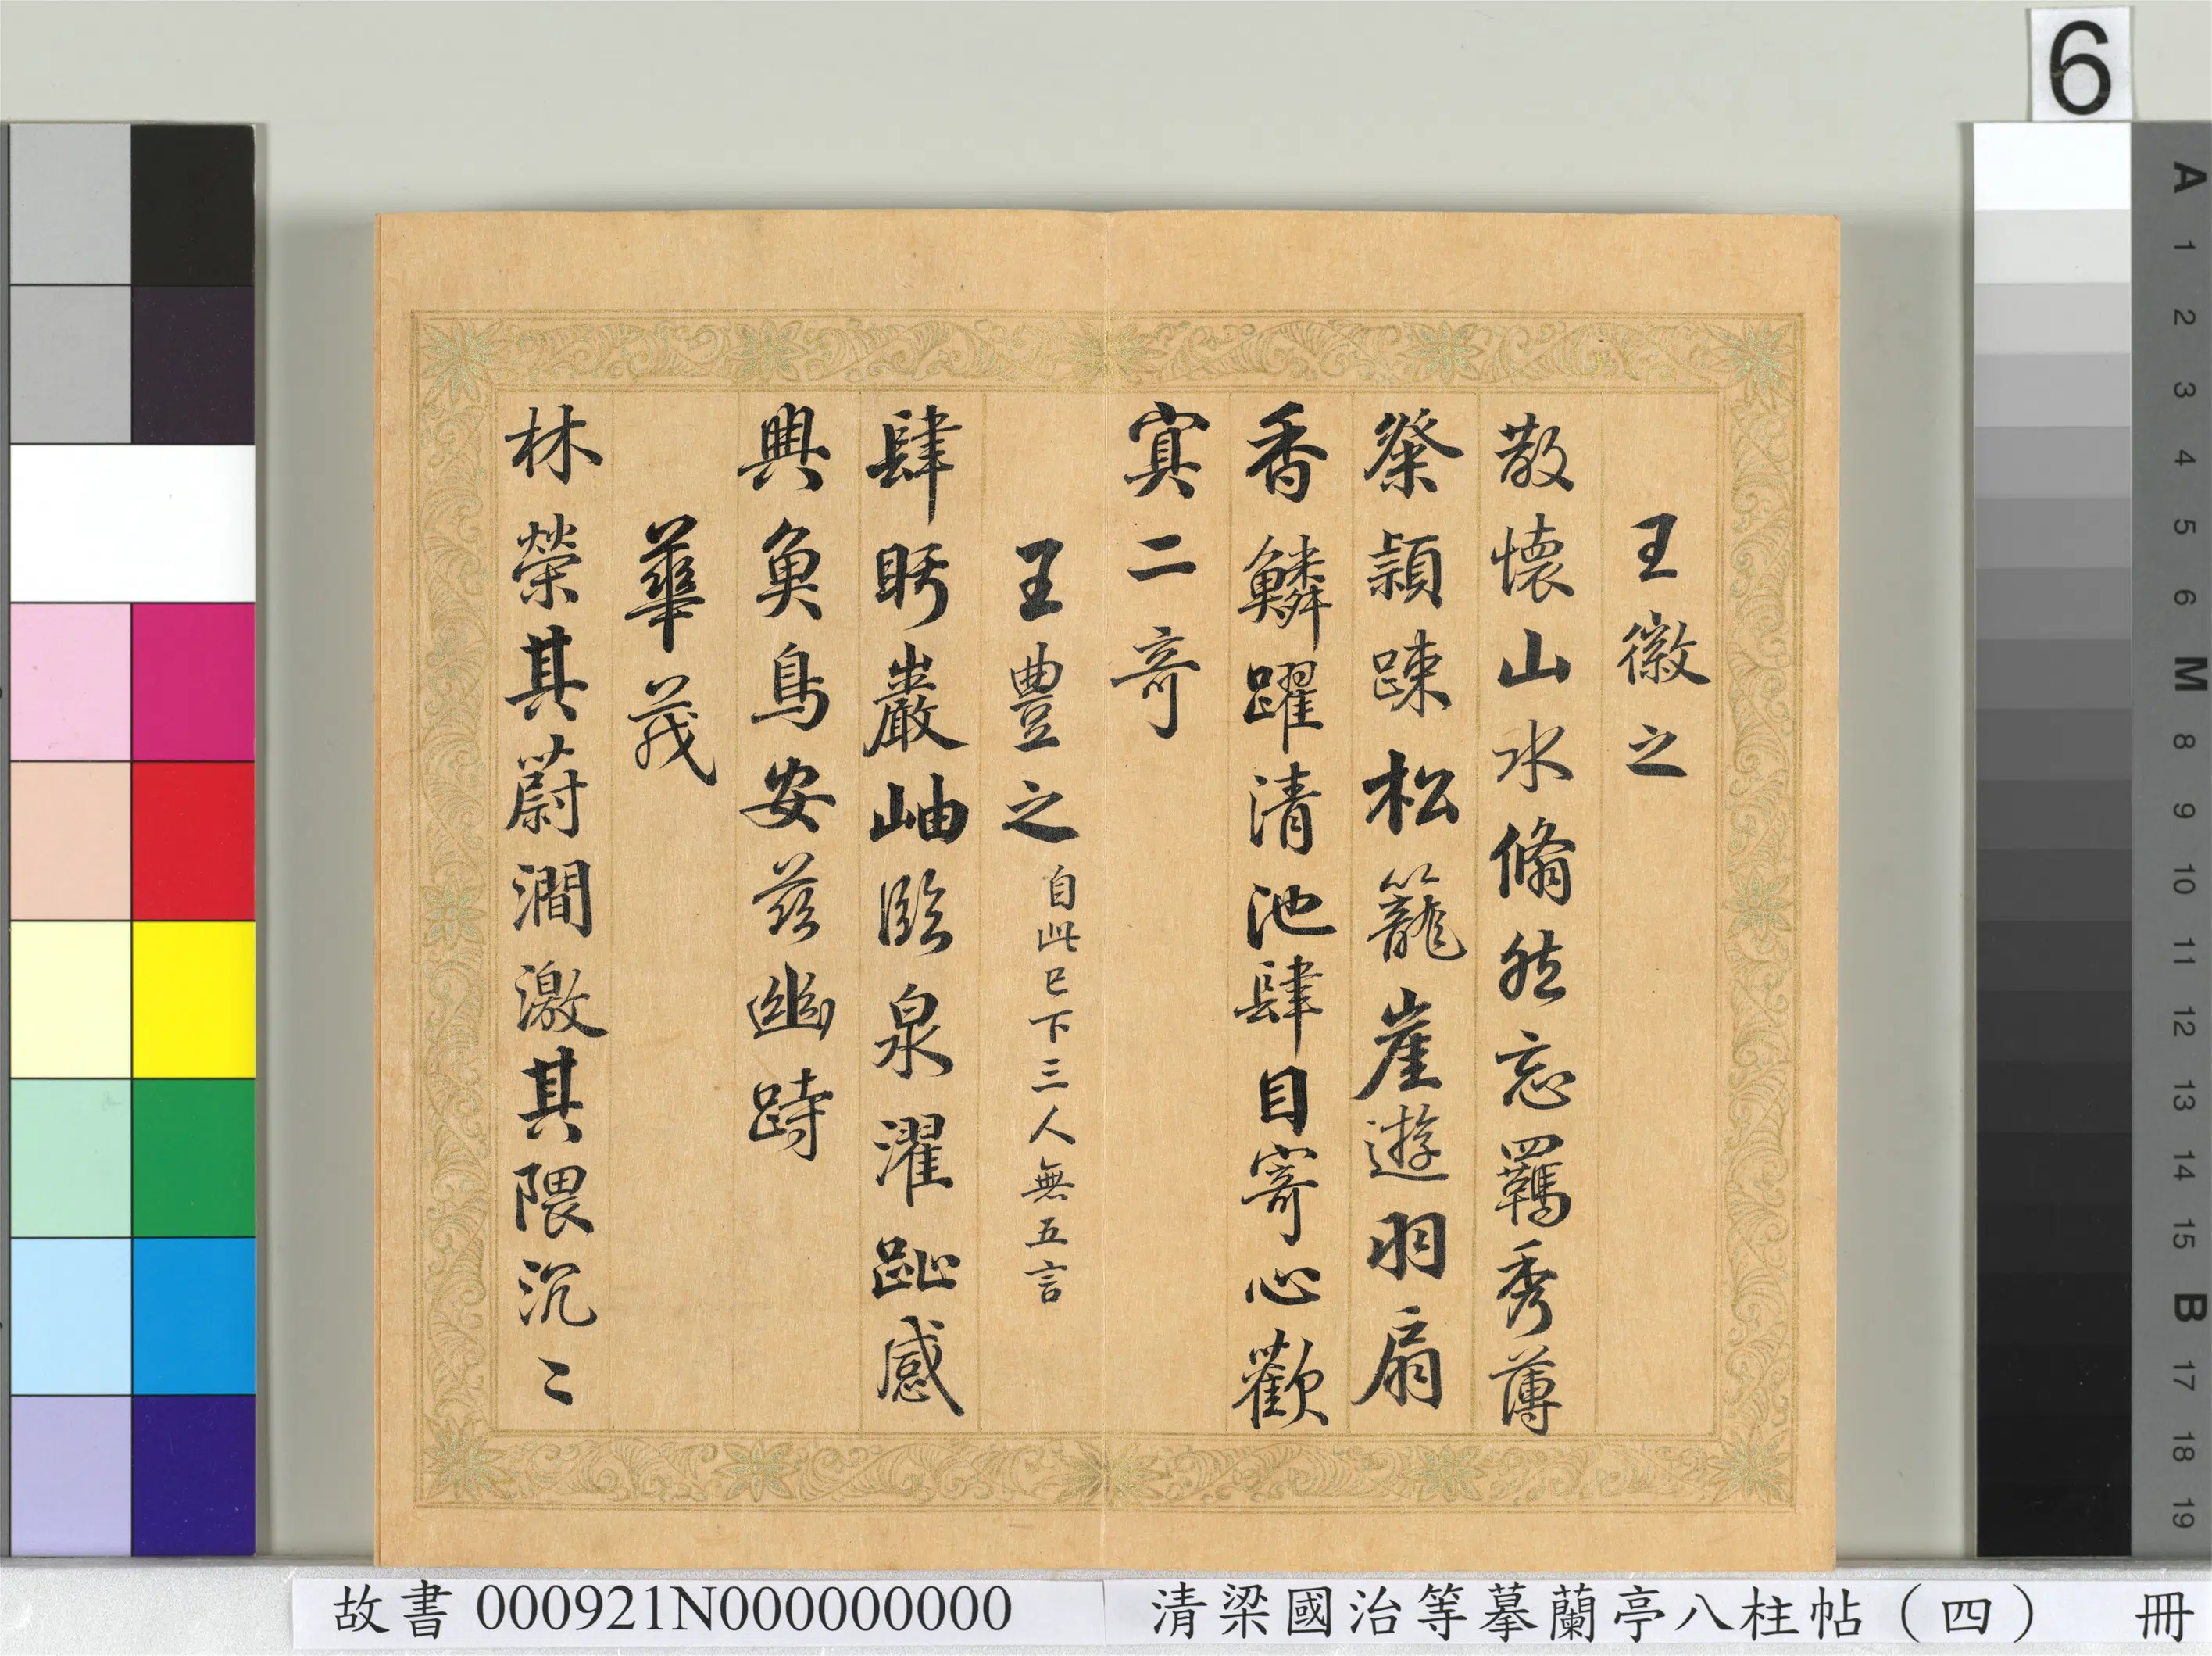 王徽之
散懷山水翛然忘羈秀薄
粲穎踈松籠崖遊羽扇
香鱗躍清池肆目寄心歡
寘二奇
王豊之自此已下三人無五言
肆眄巖岫臨泉濯趾感
興魚鳥安兹幽跱
華茂
林榮其蔚澗激其隈汎〻
6
A
1
2
3
4
5
6
M
8
9
10
11
12
13
14
15
B
17
18
19
故書 000921N000000000 清梁國治等摹蘭亭八柱帖（四） 冊